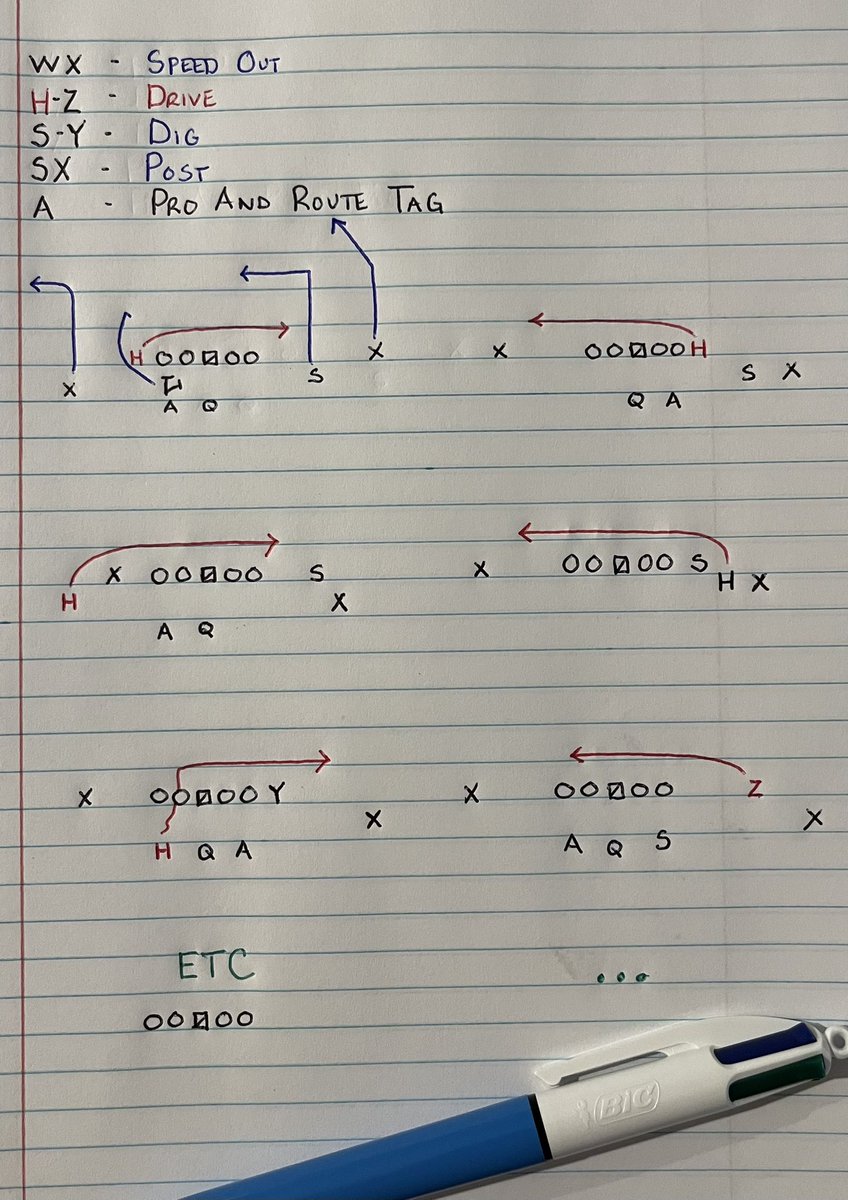 WX - SPEED OUT
H-Z - DRIVE
S-Y - DIG
SX - POST
A - PRO AND ROUTE TAG
H OO OO X
X S
A Q
X OO OOH
S X
Q A
X OO OO S
H X
A Q
X OO OO S
H X
X OO OO Y
X
H Q A
X OO OO Z
X
A Q S
ETC
...
OO OO
BIC